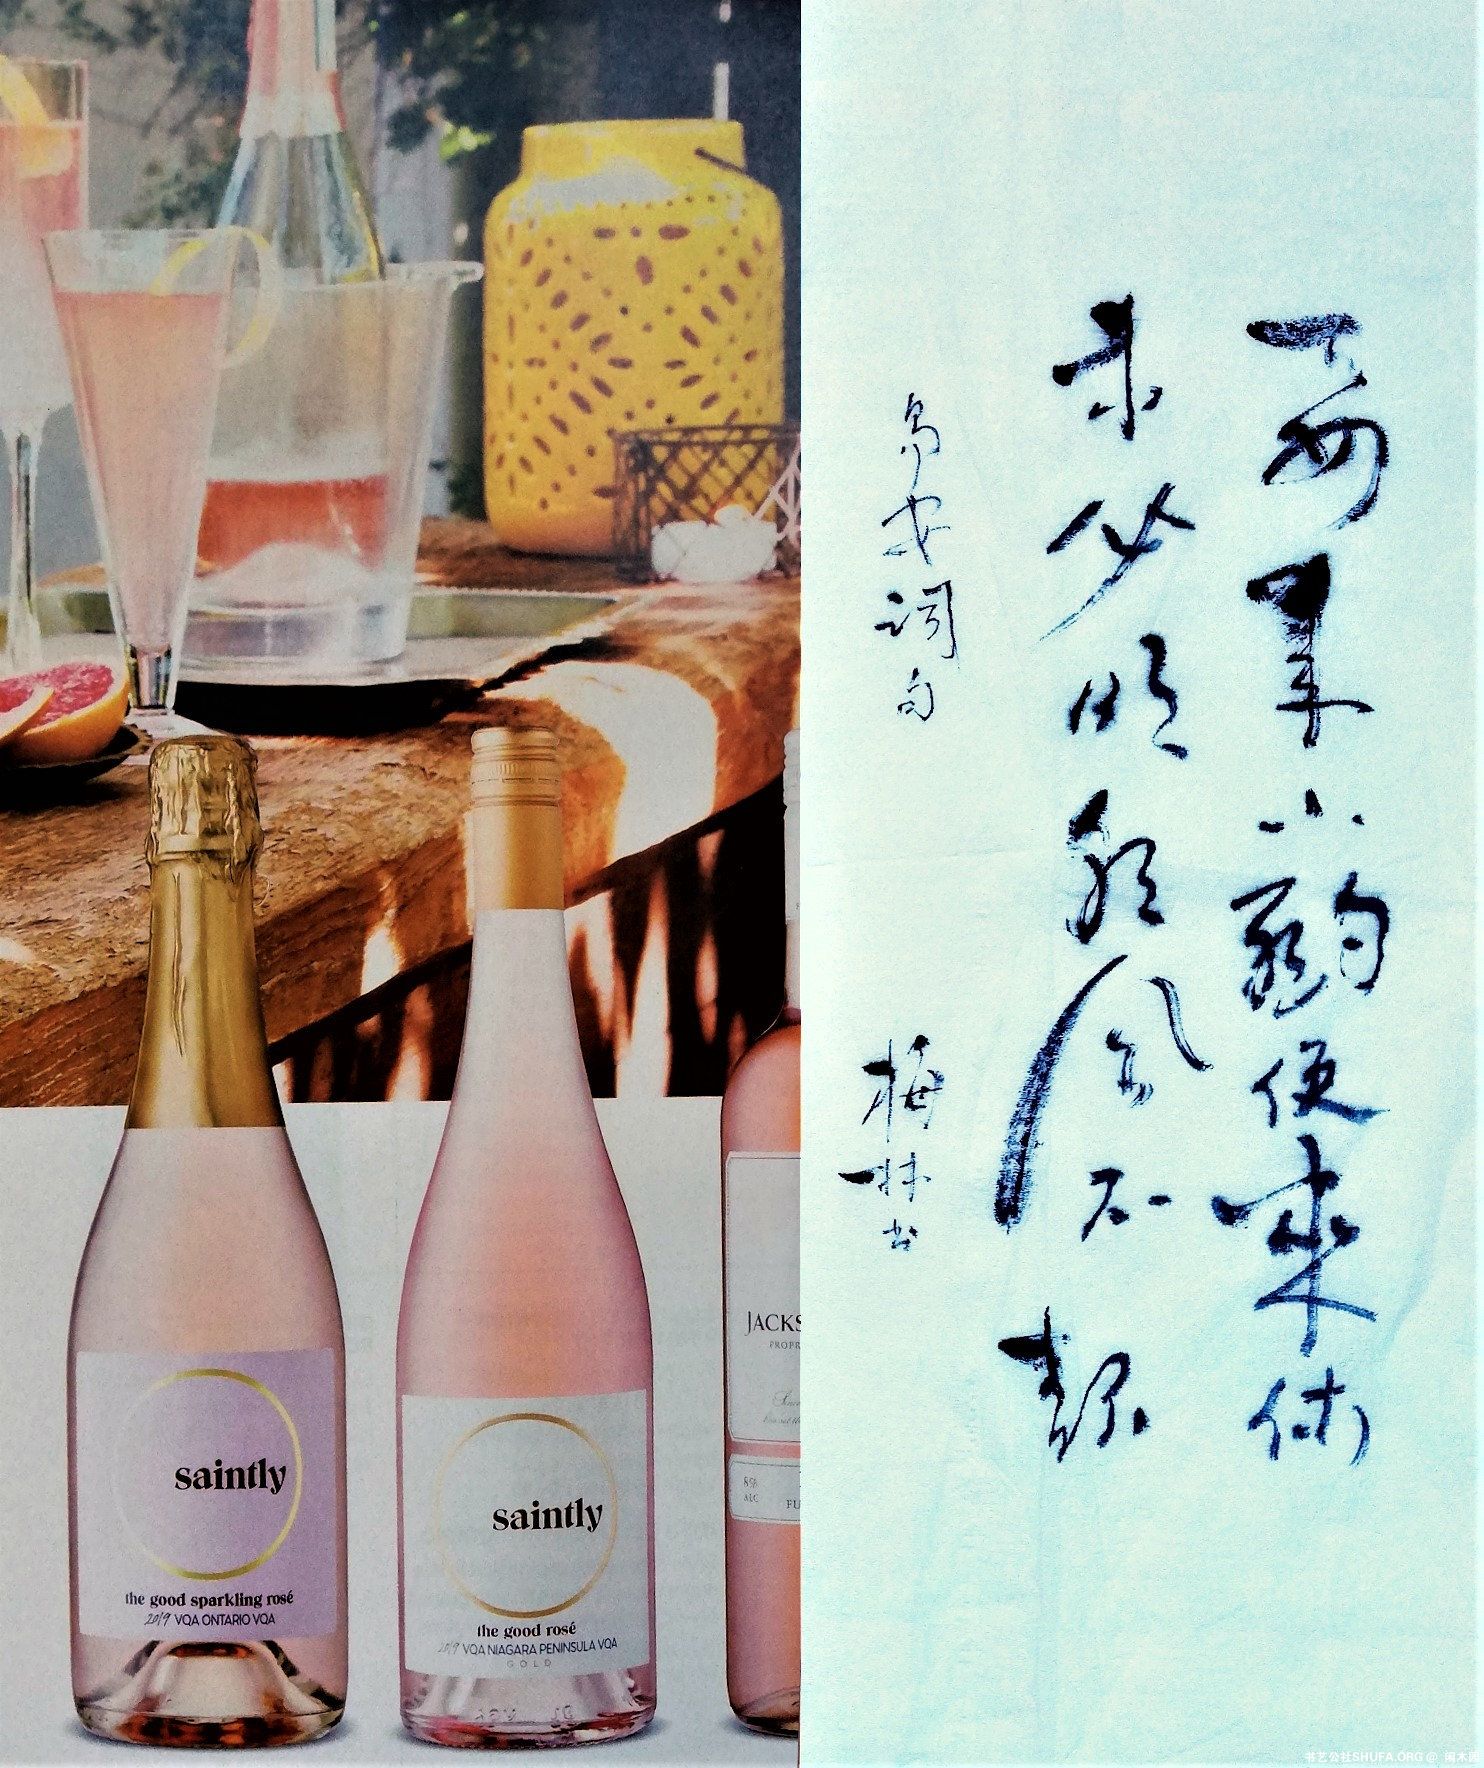 saintly
the good sparkling rosé
2019 VQA ONTARIO VQA
saintly
the good rosé
2019 VQA NIAGARA PENINSULA VQA
GOLD
JACKS
PROPR
Since
8%
ALC
FU
要來小酌便來休
未必明朝風不起
易安词句
梅林书
书艺公社SHUFA.ORG @